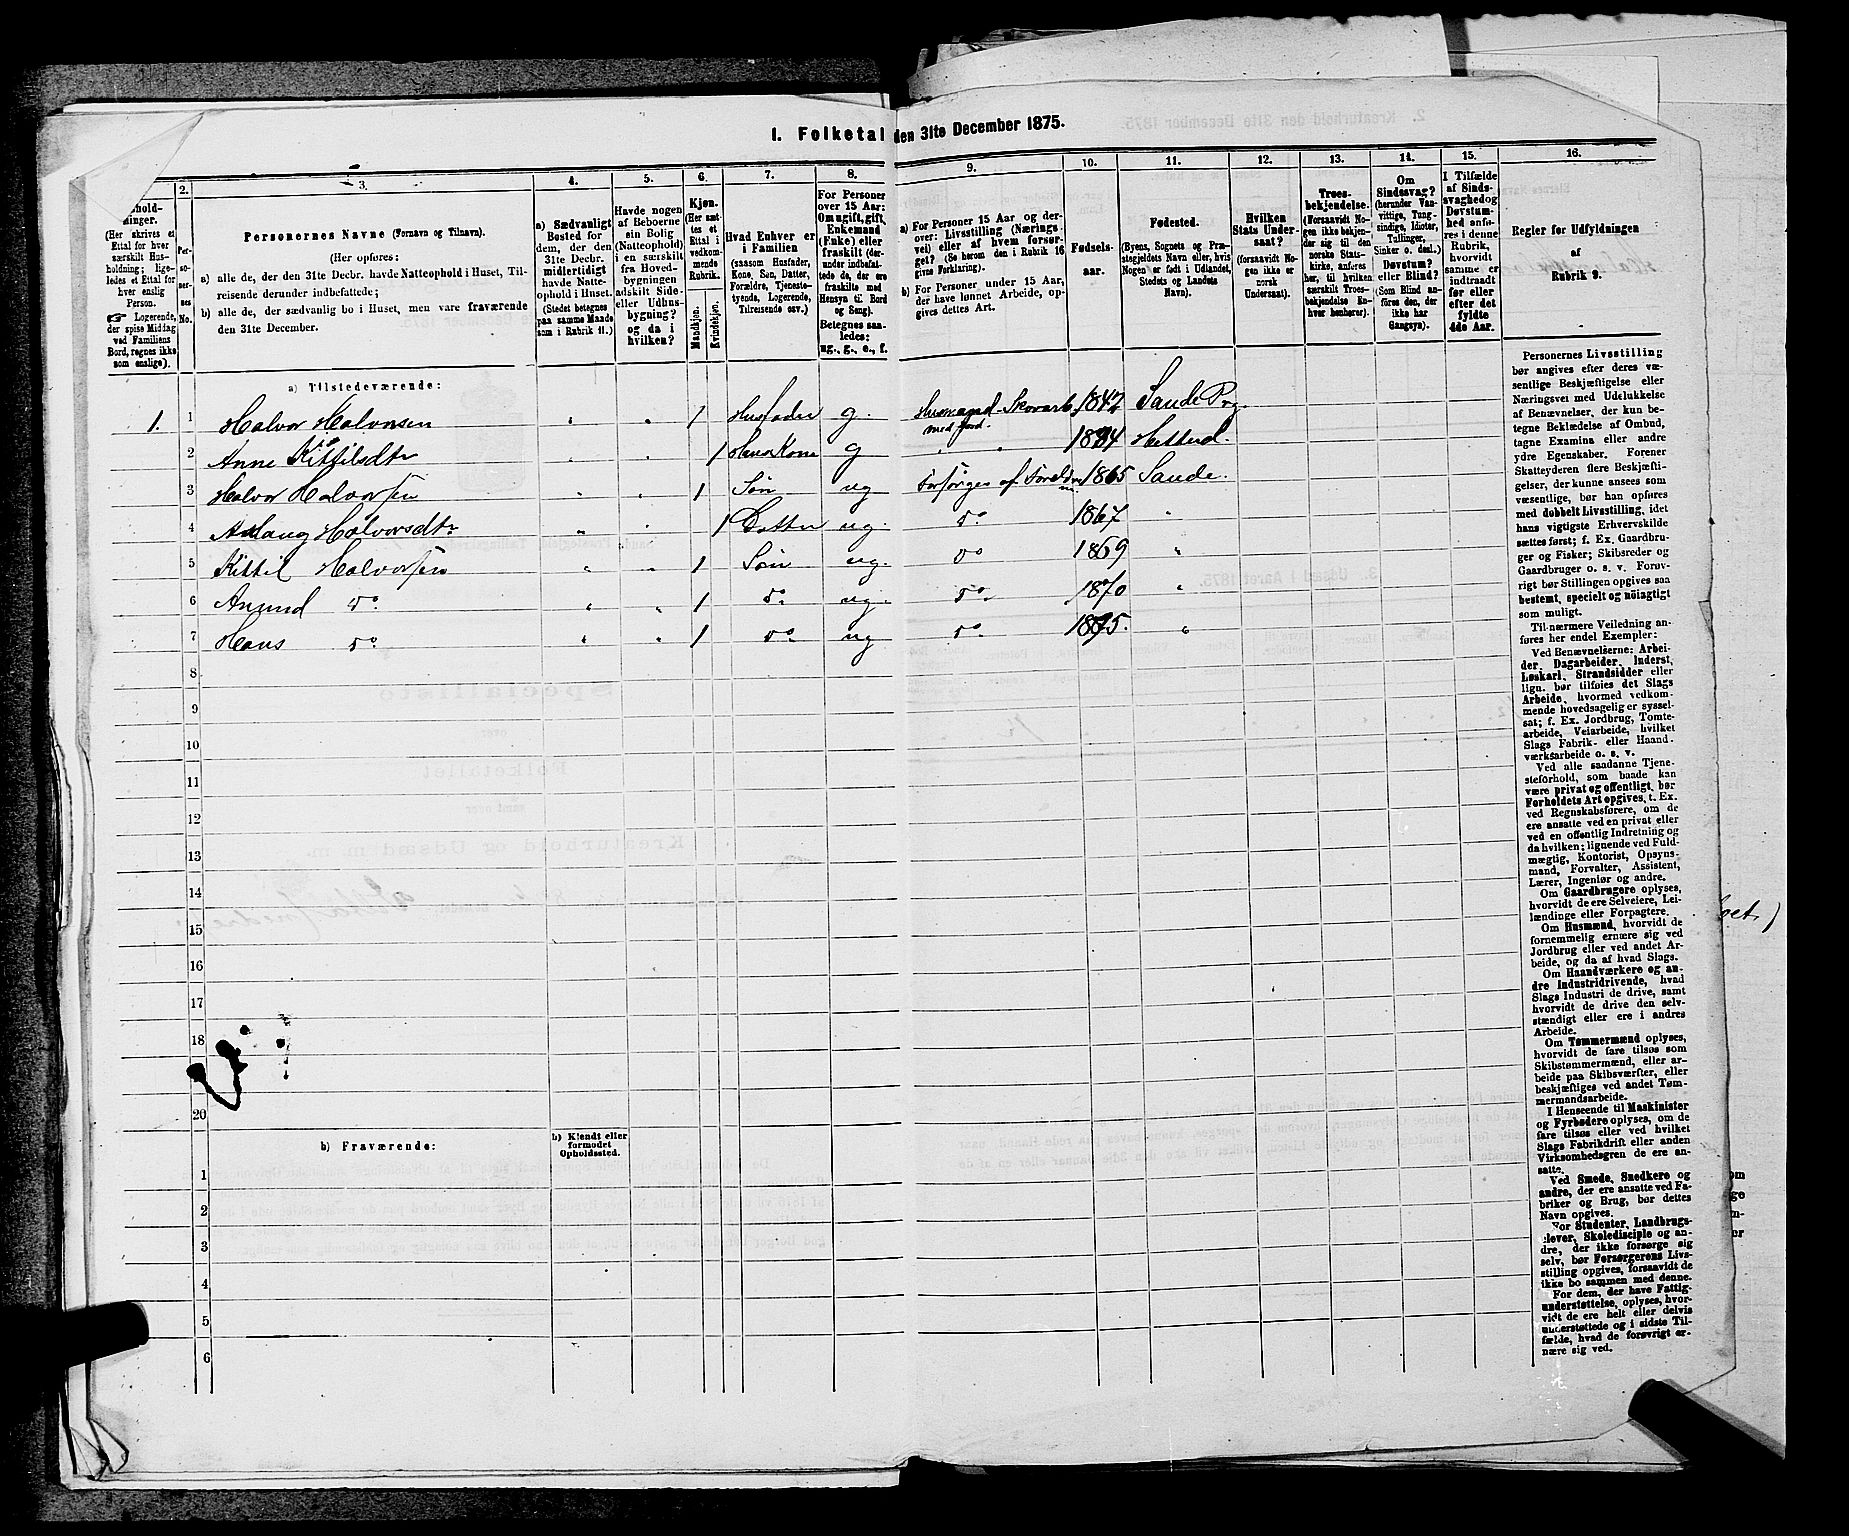 1. Folketal den 31te December 1875.
1. 2. 3. 4. 5. 6. 7. 8. 9. 10. 11. 12. 13. 14. 15. 16.
(Her skrives et
Ettal for hver
særskilt Hus-
holdning; lige-
ledes et Ettal for
hver enslig
Person.
☞ Logerende,
der spise Middag
ved Familiens
Bord, regnes ikke
som enslige).
Per-
so-
ner-
nes
No.
Personernes Navne (Fornavn og Tilnavn).
(Her opføres:
a) alle de, der den 31te Decbr. havde Natteophold i Huset, Til-
reisende derunder indbefattede;
b) alle de, der sædvanlig bo i Huset, men vare fraværende
den 31te December.
a) Sædvanligt
Bosted for
dem, der den
31te Decbr.
midlertidigt
havde Natte-
ophold i Huset.
(Stedet betegnes
paa samme Maade
som i Rubrik 11.)
Havde nogen
af Beboerne
sin Bolig
(Natteophold)
i en særskilt
fra Hoved-
bygningen
adskilt Side-
eller Udhus-
bygning?
og da i
hvilken?
Kjøn.
(Her sæt-
tes et
Ettal i
vedkom-
mende
Rubrik.
Mandkjøn.
Kvindekjøn.
Hvad Enhver er
i Familien
(saasom Husfader,
Kone, Søn, Datter,
Forældre, Tjeneste-
tyende, Logerende,
Tilreisende osv.)
For Personer
over 15 Aar:
Om ugift, gift,
Enkemand
(Enke) eller
fraskilt (der-
under indbefat-
tede de, der ere
fraskilte med
Hensyn til Bord
og Seng).
Betegnes saa-
ledes:
ug., g., e., f.
a) For Personer 15 Aar og der-
over: Livsstilling (Nærings-
vei) eller af hvem forsør-
get? (Se herom den i Rubrik 16
givne Forklaring).
b) For Personer under 15 Aar,
der have lønnet Arbeide, op-
gives dettes Art.
Fødsels-
aar.
Fødested.
(Byens, Sognets og Præ-
stegjeldets Navn eller, hvis
Nogen er født i Udlandet,
Stedets og Landets
Navn).
Hvilken
Stats Under-
saat?
(forsaavidt No-
gen ikke er
norsk
Undersaat).
Troes-
bekjendelse.
(Forsaavidt No-
gen ikke bekjen-
der sig til den
norske Stats-
kirke, anføres
her, til hvilken
særskilt Troes-
bekjendelse En-
hver henhører).
Om
Sindssvag?
(herunder Van-
vittige, Tung-
sindige, Idioter,
Tullinger,
Sinker o. desl.).
Døvstum?
eller Blind?
(Som Blind an-
føres den, der
ikke har
Gangsyn).
I Tilfælde
af Sinds-
svaghed og
Døvstum-
hed anfø-
res i denne
Rubrik,
hvorvidt
samme er
indtraadt
før eller
efter det
fyldte
4de Aar.
Regler for Udfyldningen
af
Rubrik 9.
a) Tilstedeværende:
1. 1 Halvor Halvorsen " " 1 Husfader g. Husmand med Jord. 1842 Sande Pg.
2 Anne Kittilsdtr " " 1 Hans Kone g " " Hetterd.
3 Halvor Halvorsen " " 1 Søn ug Forsørges af 1865 Sande.
4 Aslaug Halvorsdtr " " 1 Datter ug. do 1867 "
5 Kittil Halvorsen " " 1 Søn ug. do 1869 "
6 Anund do " " 1 do ug. do 1870 "
7 Hans do " " 1 do ug do 1875. "
8
9
10
11
12
13
14
15
16
17
18
20
b) Fraværende:
b) Kjendt eller
formodet
Opholdssted.
1
2
3
4
5
6
Personernes Livsstilling
bør angives efter deres væ-
sentlige Beskjæftigelse eller
Næringsvei med Udelukkelse
af Benævnelser, der kun be-
tegne Beklædelse af Ombud,
tagne Examina eller andre
ydre Egenskaber. Forener
Skatteyderen flere Beskjæfti-
gelser, der kunne ansees som
væsentlige, bør han opføres
med dobbelt Livsstilling, idet
hans vigtigste Erhvervskilde
sættes først; f. Ex. Gaardbru-
ger og Fisker; Skibsreder og
Gaardbruger o. s. v. Forøv-
rigt bør Stillingen opgives saa
bestemt, specielt og nøiagtigt
som muligt.
Til nærmere Veiledning an-
føres her endel Exempler:
Ved Benævnelserne: Arbei-
der, Dagarbeider, Inderst,
Løskarl, Strandsidder eller
lign. bør tilføies det Slags
Arbeide, hvormed vedkom-
mende hovedsagelig er syssel-
sat; f. Ex. Jordbrug, Tomte-
arbeide, Veiarbeide, hvilket
Slags Fabrik- eller Haand-
værksarbeide o. s. v.
Ved alle saadanne Tjene-
steforhold, som baade kan
være privat og offentligt, bør
Forholdets Art opgives, t. Ex.
ved Regnskabsførere, om de
ere ansatte ved en privat eller
ved en offentlig Indretning og
da hvilken; lignende ved Fuld-
mægtig, Kontorist, Opsyns-
mand, Forvalter, Assistent,
Lærer, Ingeniør og andre.
Om Gaardbrugere oplyses,
hvorvidt de ere Selveiere, Lei-
lændinge eller Forpagtere.
Om Husmænd, hvorvidt de
fornemmelig ernære sig ved
Jordbrug eller ved andet Ar-
beide, og da af hvad Slags.
Om Haandværkere og an-
dre Industridrivende, hvad
Slags Industri de drive, samt
hvorvidt de drive den selv-
stændigt eller ere i andres
Arbeide.
Om Tømmermænd oplyses,
hvorvidt de fare tilsøs som
Skibstømmermænd, eller ar-
beide paa Skibsværfter, eller
beskjæftiges ved andet Tøm-
mermandsarbeide.
I Henseende til Maskinister
og Fyrbødere oplyses, om de
fare tilsøs eller ved hvilket
Slags Fabrikdrift eller anden
Virksomhedsgren de ere an-
satte.
Ved Smede, Snedkere og
andre, der ere ansatte ved Fa-
briker og Brug, bør dettes
Navn opgives.
For Studenter, Landbrugs-
elever, Skoledisciple og an-
dre, der ikke forsørge sig
selv, bør Forsørgerens Livs-
stilling opgives, forsaavidt de
ikke bo sammen med denne.
For dem, der have Fattig-
understøttelse, oplyses, hvor-
vidt de ere helt eller delvis
understøttede og i sidste Til-
fælde, hvad de forøvrigt er-
nære sig ved.